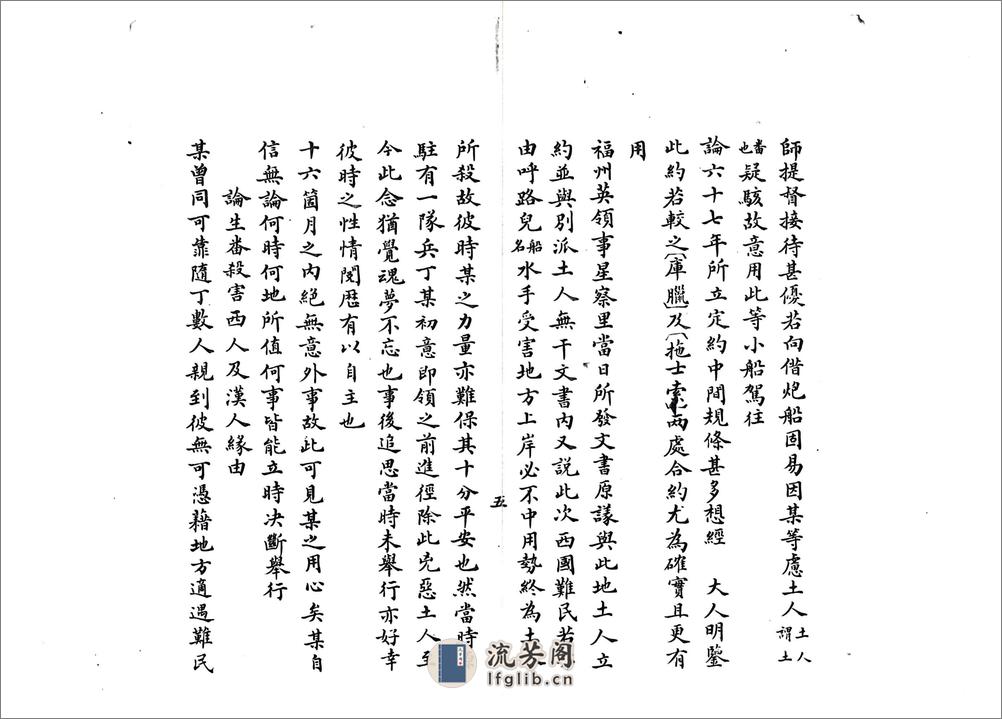 師提督接待甚優若向借炮船固易因某等慮土人土人謂土
番也疑駭故意用此等小船駕往
論六十七年所立定約中間規條甚多想經　大人明鑒
此約若較之庫臘及拖士索兩處合約尤為確實且更有
用
福州英領事星察里當日所發文書原議與此地土人立
約並與別派土人無干文書內又說此次西國難民若
由呼路兒船名水手受害地方上岸必不中用勢終為土
五
所殺故彼時某之力量亦難保其十分平安也然當時
駐有一隊兵丁某初意即領之前進徑除此兇惡土人至
今此念猶覺魂夢不忘也事後追思當時未舉行亦好幸
彼時之性情閱歷有以自主也
十六箇月之內絕無意外事故此可見某之用心矣某自
信無論何時何地所值何事皆能立時決斷舉行
論生番殺害西人及漢人緣由
某曾同可靠隨丁數人親到彼無可憑藉地方適遇難民
流芳阁
lfglib.cn